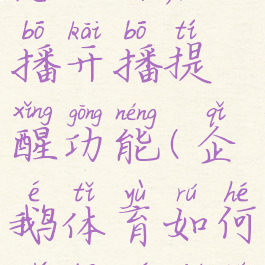 bō kāi bō tí
播开播提
xǐng gōng néng qǐ
醒功能(企
é tǐ yù rú hé
鹅体育如何